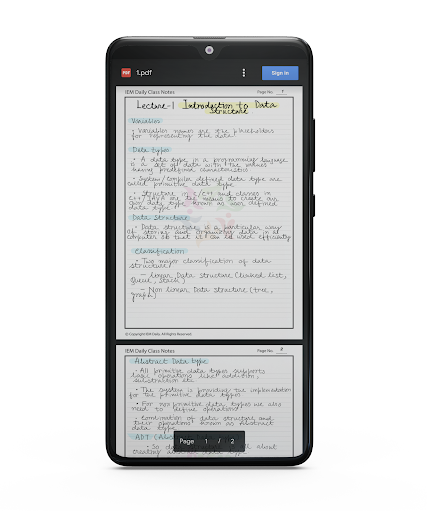 PDF 1.pdf Sign in
IEM Daily Class Notes Page No. 1
Lecture-1 Introduction to Data
Structure
Variables
• Variables names are the placeholders
for representing the data
Data types
• A data type in a programming language
is a set of data with the values
having predefined characteristics
• System/compiler defined data type are
called primitive data type
• Structure in C/C++ and classes in
C++/JAVA are the means to create our
own data type known as user defined
data type.
Data Structure
• Data structure is a particular way
of storing and organizing data in a
computer so that it can be used efficiently
Classification
• Two major classification of data
structure
– Linear Data structure (Linked list,
Queue, Stack)
– Non linear Data structure (tree,
graph)
© Copyright IEM Daily. All Rights Reserved
IEM Daily Class Notes Page No. 2
Abstract Data type
• All primitive data types supports
basic operations like addition,
substraction etc
• The system is providing the implementation
for the primitive data types
• For non primitive data types we also
need to define operations
• Combination of data structure and
their operations known as abstract
data type
ADT (Abs
Page 1 / 2
• So d all about
creating abstract data type